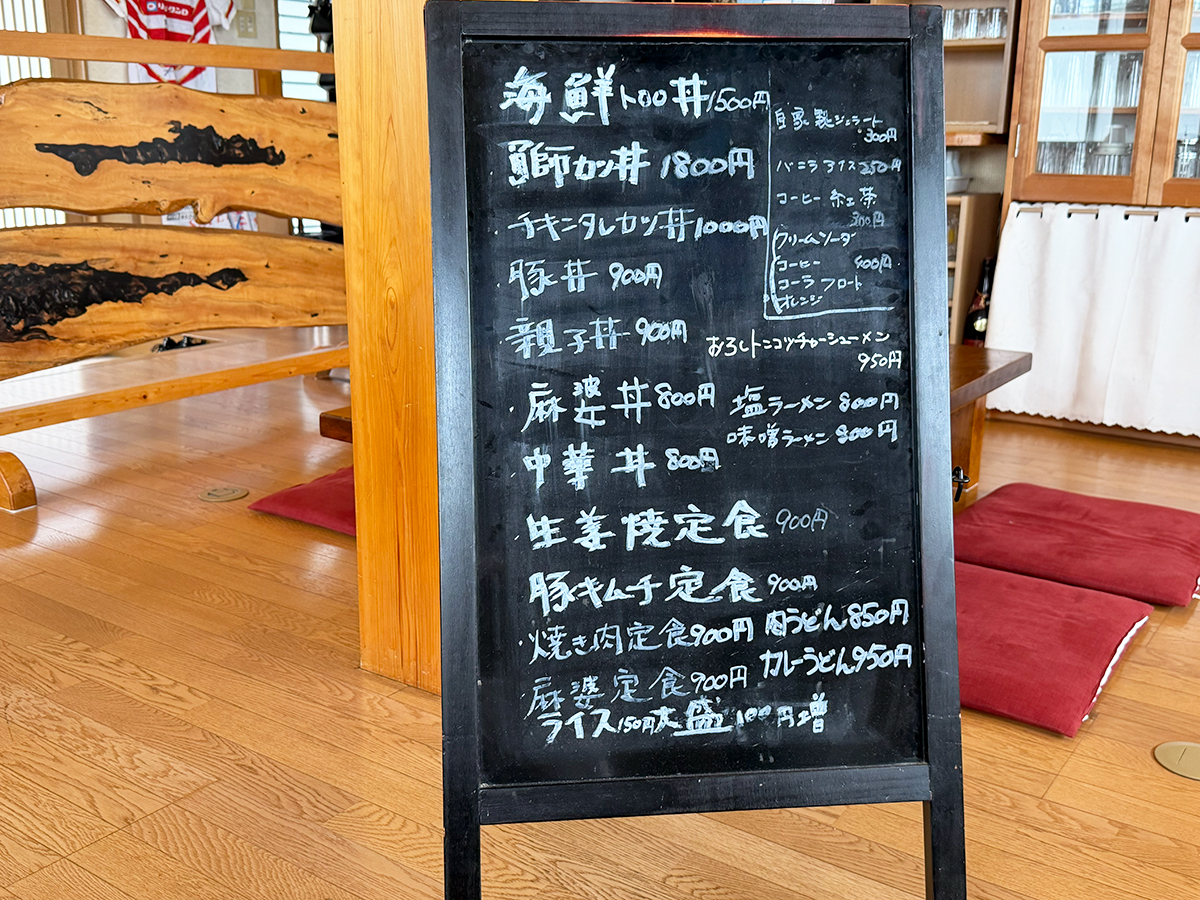 海鮮トロロ丼1500円
鰤カツ丼 1800円
チキンタレカツ丼1000円
豚丼 900円
親子丼 900円
麻婆丼 800円
中華丼 800円
生姜焼定食 900円
豚キムチ定食 900円
焼き肉定食900円
麻婆定食900円
ライス150円大盛100円増
自家製ジェラート
300円
バニラアイス250円
コーヒー 紅茶
300円
クリームソーダ
コーヒー 400円
コーラ フロート
オレンジ
おろしトンコツチャーシューメン
950円
塩ラーメン 800円
味噌ラーメン 800円
肉うどん850円
カレーうどん950円